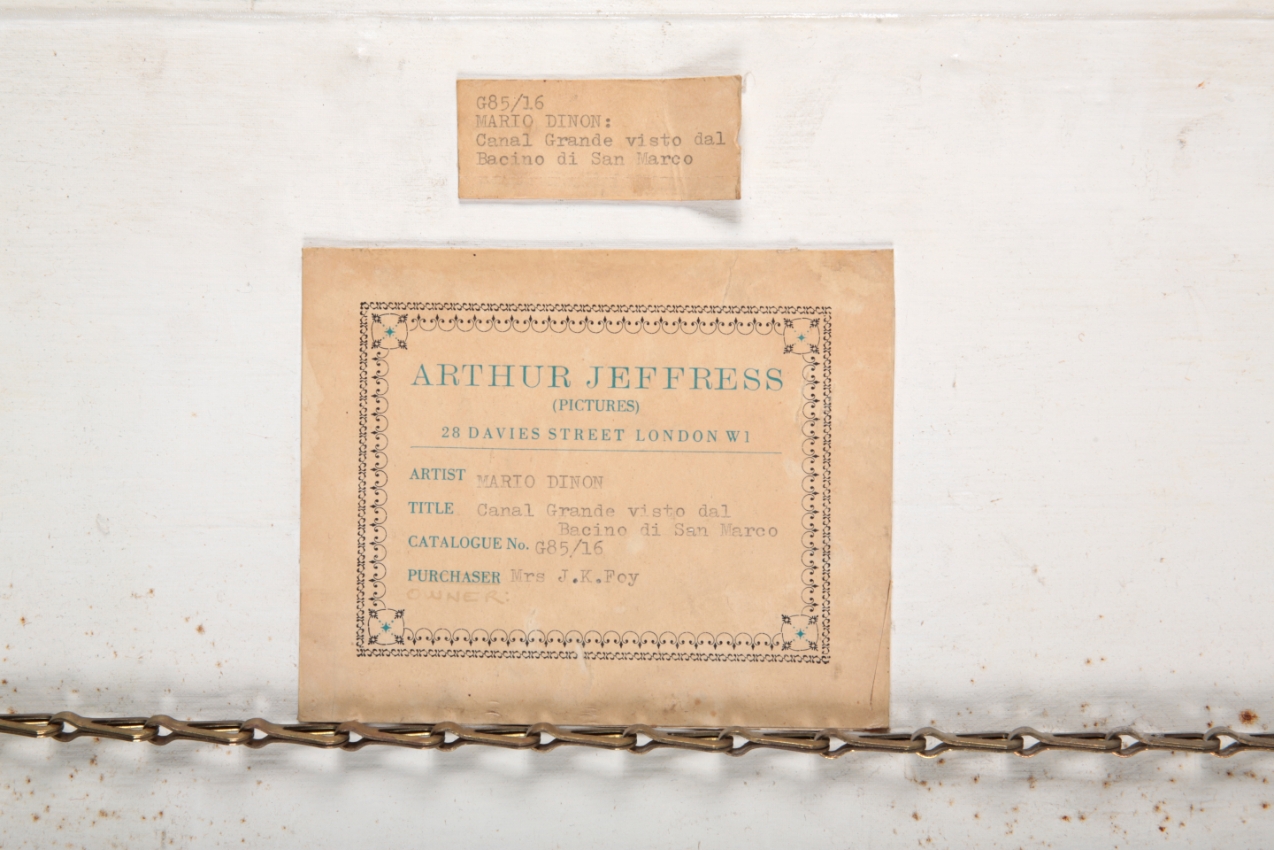 G85/16
MARIO DINON:
Canal Grande visto dal
Bacino di San Marco
ARTHUR JEFFRESS
(PICTURES)
28 DAVIES STREET LONDON W1
ARTIST MARIO DINON
TITLE Canal Grande visto dal
Bacino di San Marco
CATALOGUE No. G85/16
PURCHASER Mrs J.K.Foy
OWNER: